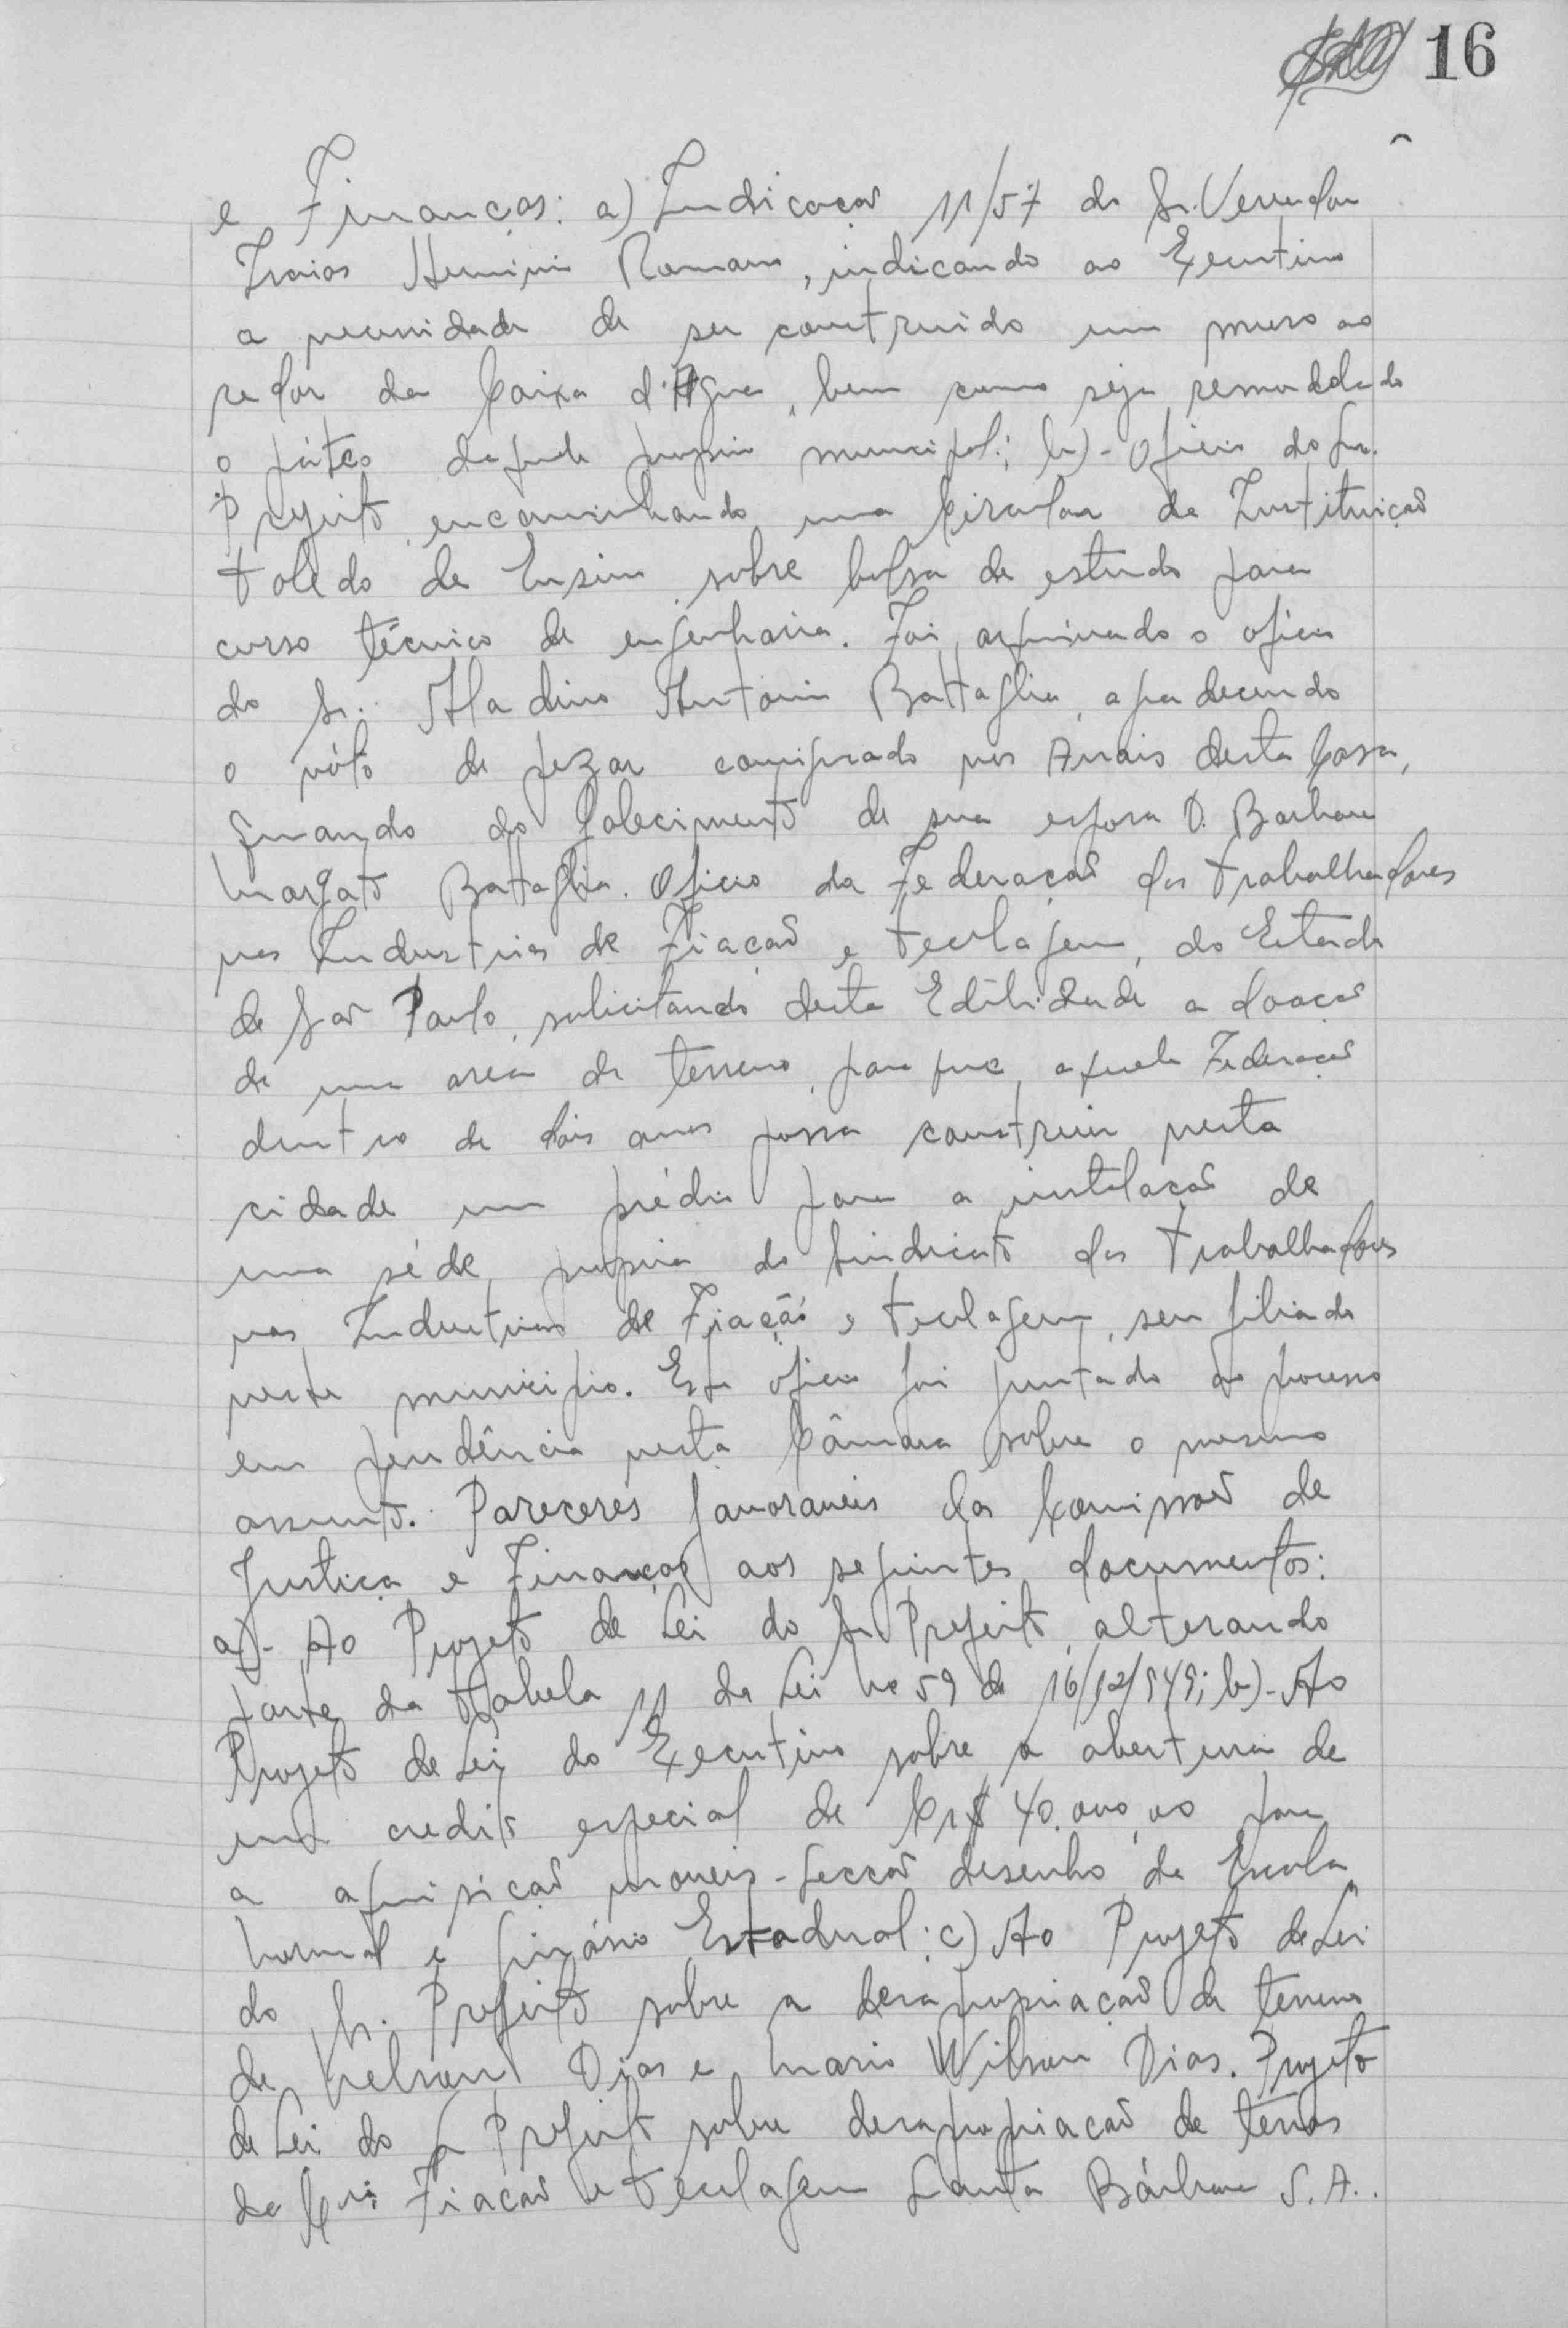 16
e Finanças: a) Indicação 11/57 do Sr. Vereador
Izaias Herminio Romano, indicando ao Executivo
a necessidade de ser construido um muro ao
redor da Caixa d'Agua, bem como seja remodelado
o páteo daquele proprio municipal; b)- Oficio do Snr.
Prefeito encaminhando uma Circular da Instituição
Toledo de Ensino, sobre bolsa de estudo para
curso técnico de engenharia. Foi arquivado o oficio
do Sr. Aladino Antonio Battaglia, agradecendo
o vóto de pezar consignado nos Anais desta Casa,
quando do falecimento de sua esposa D. Barbara
Margato Battaglia. Oficio da Federação dos Trabalhadores
nas Industrias de Fiação e Tecelagem, do Estado
de São Paulo, solicitando desta Edilidade a doação
de uma area de terreno, para que aquela Federação
dentro de dois anos possa construir nesta
cidade um prédio para a instalação de
uma séde propria do Sindicato dos Trabalhadores
nas Industrias de Fiação e Tecelagem, seu filiado
neste municipio. Este oficio foi juntado ao processo
em pendência nesta Câmara sobre o mesmo
assunto. Pareceres favoraveis da Comissão de
Justiça e Finanças aos seguintes documentos:
a)- Ao Projeto de Lei do Sr Prefeito, alterando
parte da Tabela 11 da Lei no 59 de 16/12/949; b)- Ao
Projeto de Lei do Executivo sobre a abertura de
um credito especial de Cr$ 40.000,00 para
a aquisição moveis - secção desenho da Escola
Normal e Ginásio Estadual; c) Ao Projeto de Lei
do Sr. Prefeito sobre a desapropriação de terreno
de Nelson Dias e Mario Wilson Dias. Projeto
de Lei do Sr Prefeito sobre desapropriação de terras
da Cia Fiação e Tecelagem Santa Bárbara S.A..